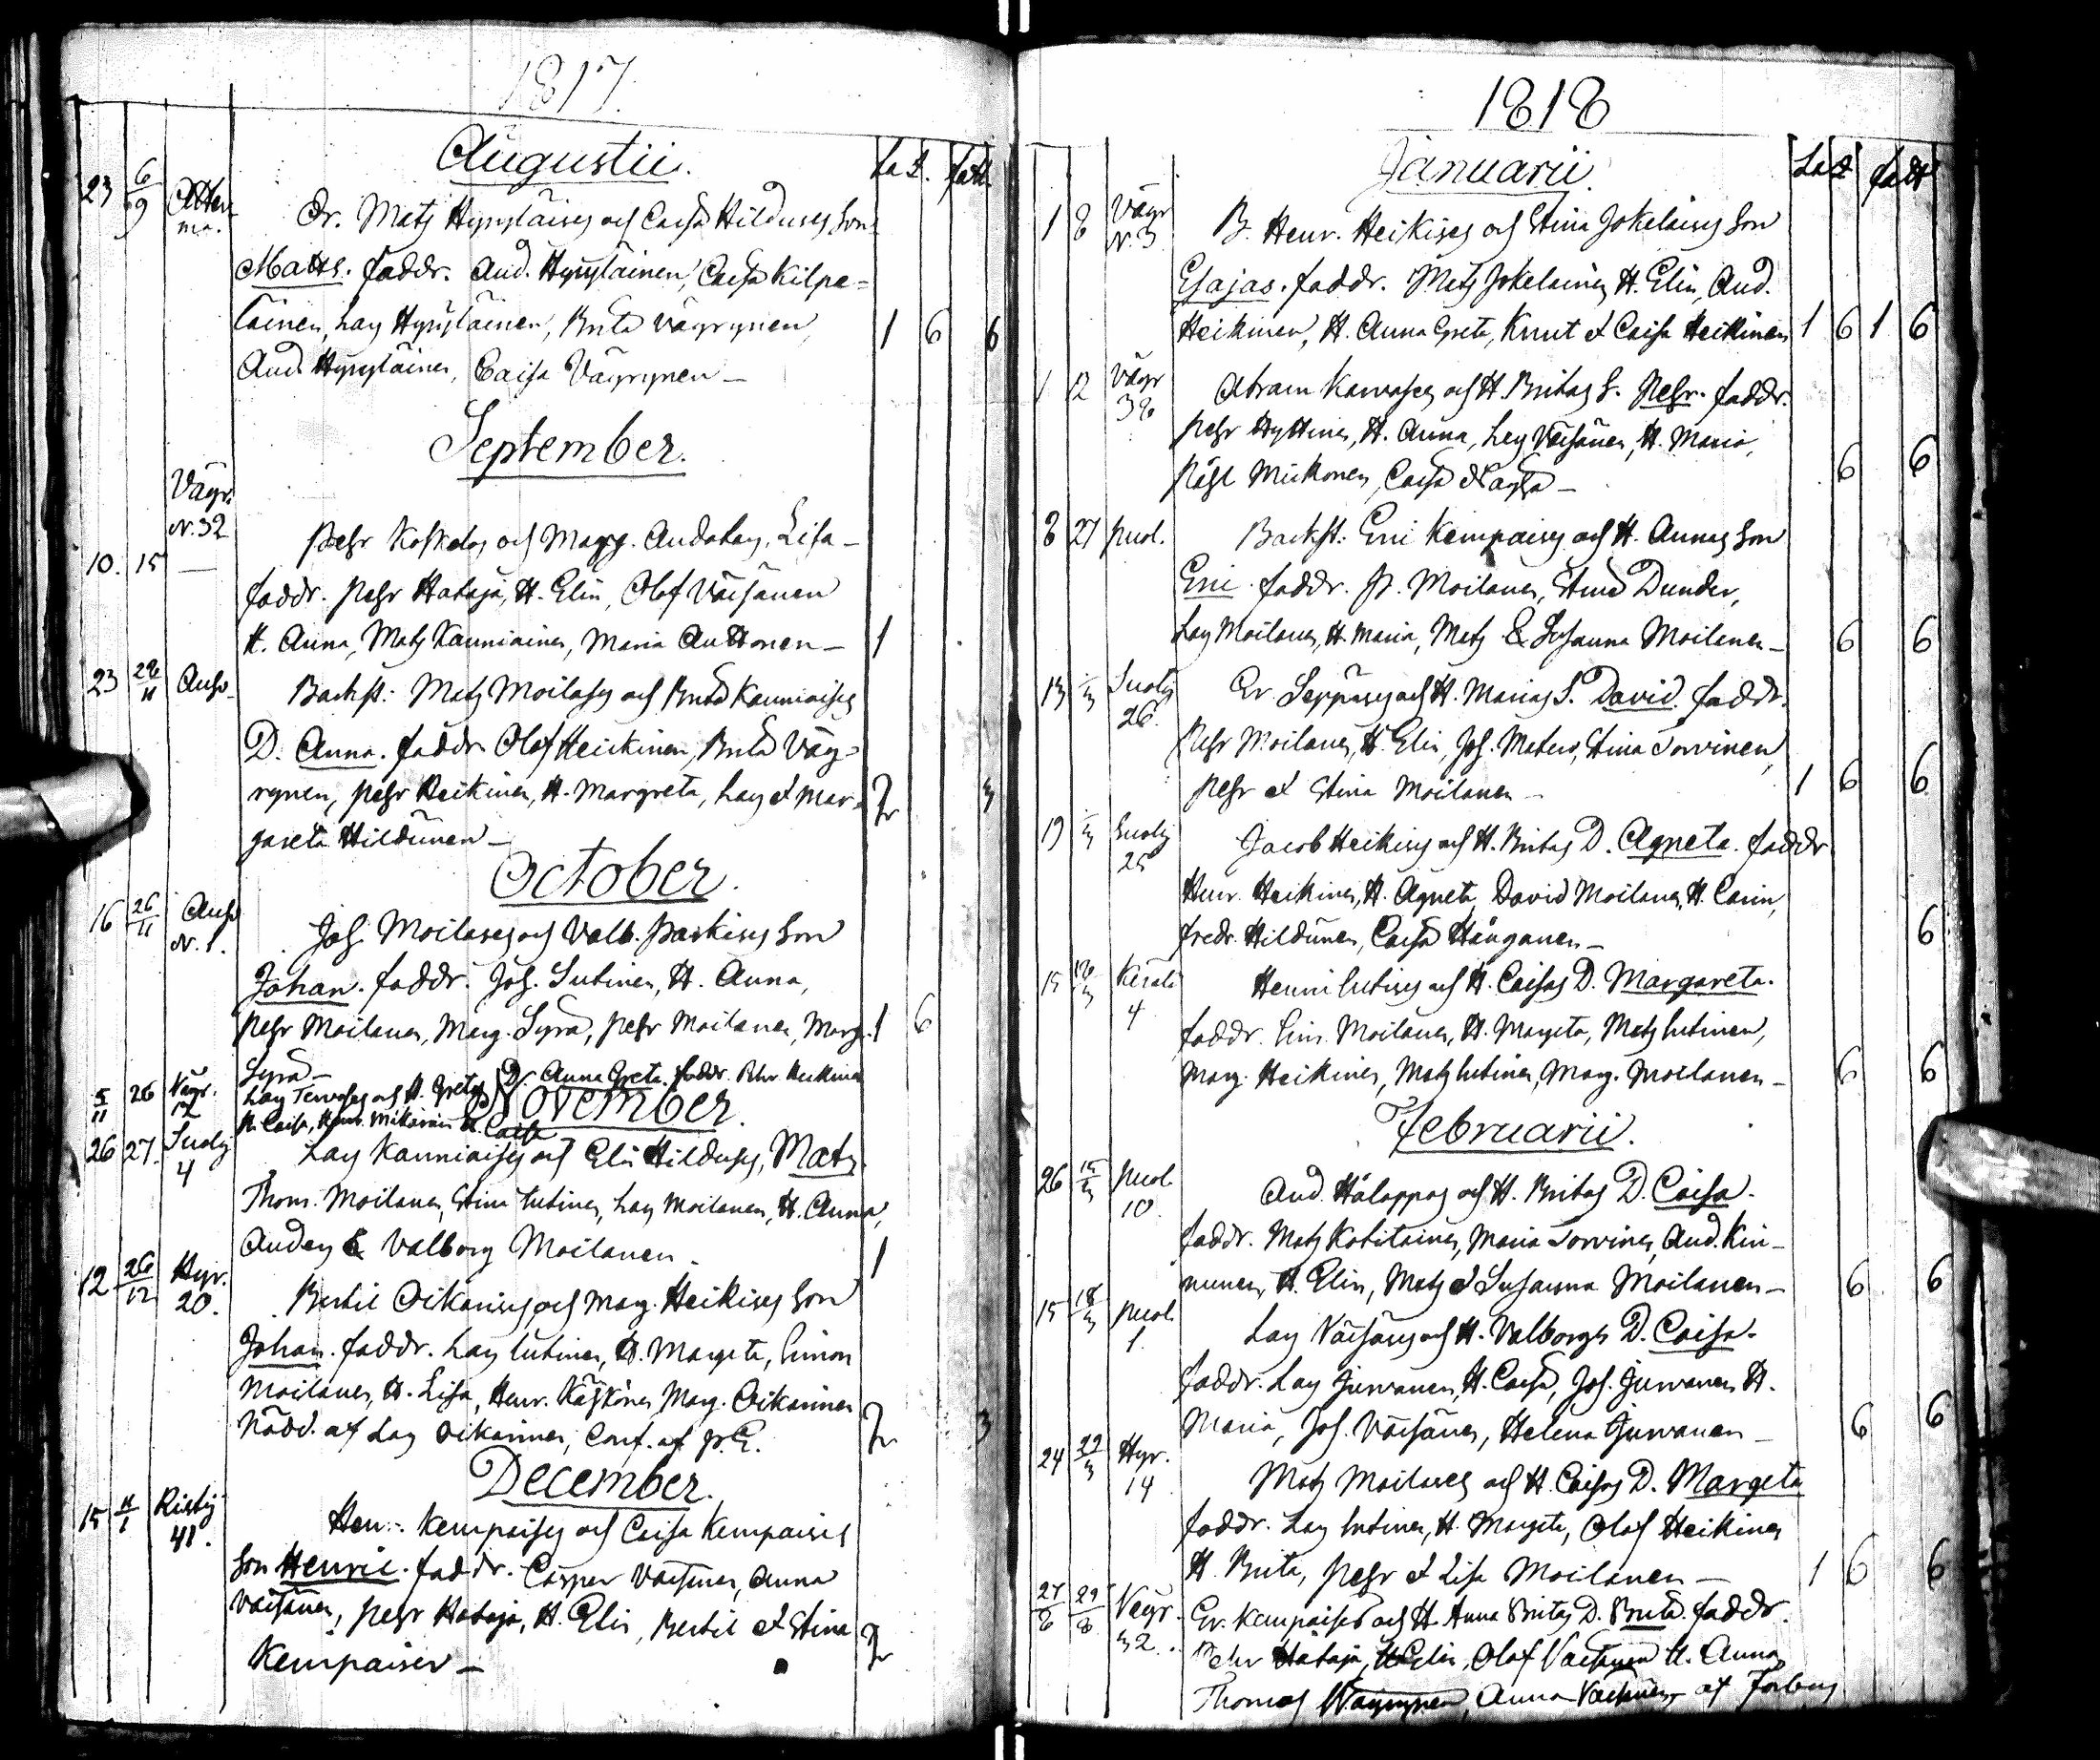 1817.
Augustii.
La d. fatt.
23 6/9 Otter
ma.
Dr. Matz Hyryläises och Caisa Hilduses Son
Matts. faddr. And. Hyryläinen, Caisa Kilpe=
läinen, Lars Hyryläinen, Brita Väyrynen, 1 6 6
And. Hyryläinen, Caisa Väyrynen —
September.
Väyr.
N. 32
10. 15 — Pehr Koskelos och Marg. Lisa —
faddr. Pehr Hataja, H. Elin, Olof Väisänen
H. Anna, Matz Kauniainen, Maria Anttonen — 1
23 28/11 Backst: Matz Moilases och Brita Kauniaises
D. Anna. faddr. Olof Heickinen, Brita Väy=
rynen, Pehr Heikinen, H. Margreta, Lars et Mar= 3
gareta Hildunen —
October.
16 26/11
N. 1. Joh. Moilases och Valb. Parkises Son
Johan. faddr. Joh. Lutinen, H. Anna,
Pehr Moilanen, Marg. Syrä, Pehr Moilanen, Marg. 1 6
Syrä —
5/11 26 Väyr.
12 Lars Tervoses och H. Gretas D. Anna Greta. faddr. Pehr Heikinen
H. Caisa, Henr. H. Caisa
November.
26 27. Suolij
4 Lars Kauniaises och Elin Hilduses, Matz.
Thom. Moilanen, Stina Lutinen, Lars Moilanen, H. Anna,
Anders & Valborg Moilanen. 1
12 26/12 Hyr.
20. Bertil Oikarises och Marg. Heikises Son
Johan. faddr. Lars Lutinen, H. Margeta, Simon
Moilanen, H. Lisa, Henr. Marg. Oikarinen
Nödd. af Lars Oikarinen, Conf. af P. E. 3
December.
15 11/1 Ristij
41. Hen. Kempaises och Caisa Kempaises
Son Henric. faddr. Casper Väisänen, Anna
Väisänen, Pehr Hataja, H. Elin, Bertil et Stina
Kempainen —
1818
Januarii.
La d fatt
1 8 Väyr
N. 3 B. Henr. Heikises och Stina Jokelaises Son
Esajas. faddr. Matz Jokelainen, H. Elin, And.
Heikinen, H. Anna Greta, Knut et Caisa Heikinen 1 6 1 6
1 12 Väyr
38 Abram Karvases och H. Britas S. Pehr. faddr.
Pehr Hyttinen, H. Anna, Lars Väisänen, H. Maria,
Påhl Mickonen, Caisa — 6 6
8 27 Puol. Backst: Eric Kempaises och H. Annas Son
Eric. faddr. P. Moilanen, Stina Dunder,
Lars Moilanen, H. Maria, Matz & Susanna Moilanen — 6 6
13 Suolij
26. Er. Seppäses och H. Marias S. David. faddr.
Pehr Moilanen, H. Elin, Joh. Matero, Stina Torvinen,
Pehr et Stina Moilanen — 1 6 6
19 Suolij
25 Jacob Heikises och H. Britas D. Agneta. faddr
Henr. Heikinen, H. Agneta, David Moilanen, H. Carin,
Fredr. Hildunen, Caisa Hänganen — 6
15 18/3 Kerälä
4 Henric Lutises och H. Caisas D. Margareta.
faddr. Moilanen, H. Margeta, Matz Lutinen,
Marg. Heikinen, Matz Lutinen, Marg. Moilanen — 6 6
Februarii.
26 15/3 Puol.
10. And. Hälappas och H. Britas D. Caisa.
faddr. Matz Kotilainen, Maria Torvinen, And. Kin-
nunen, H. Elin, Matz et Susanna Moilanen — 6 6
15 18/3 Puol.
1. Lars Väisäses och H. Valborgs D. Caisa.
faddr. Lars Juvanen, H. Caisa, Joh. Juvanen H.
Maria, Joh. Väisänen, Helena Juvanen — 6 6
24 22/3 Hyr.
14 Matz Moilases och H. Caisas D. Margeta
faddr. Lars Lutinen, H. Margeta, Olof Heikinen
H. Brita, Pehr et Lisa Moilanen — 1 6 6
27/8 29/8 Väyr.
32. Er. Kempaises och H. Anna Britas D. Brita. faddr.
Pehr Hataja, H. Elin, Olof Väisänen H. Anna,
Thomas Väyrynen, Anna Väisänen af